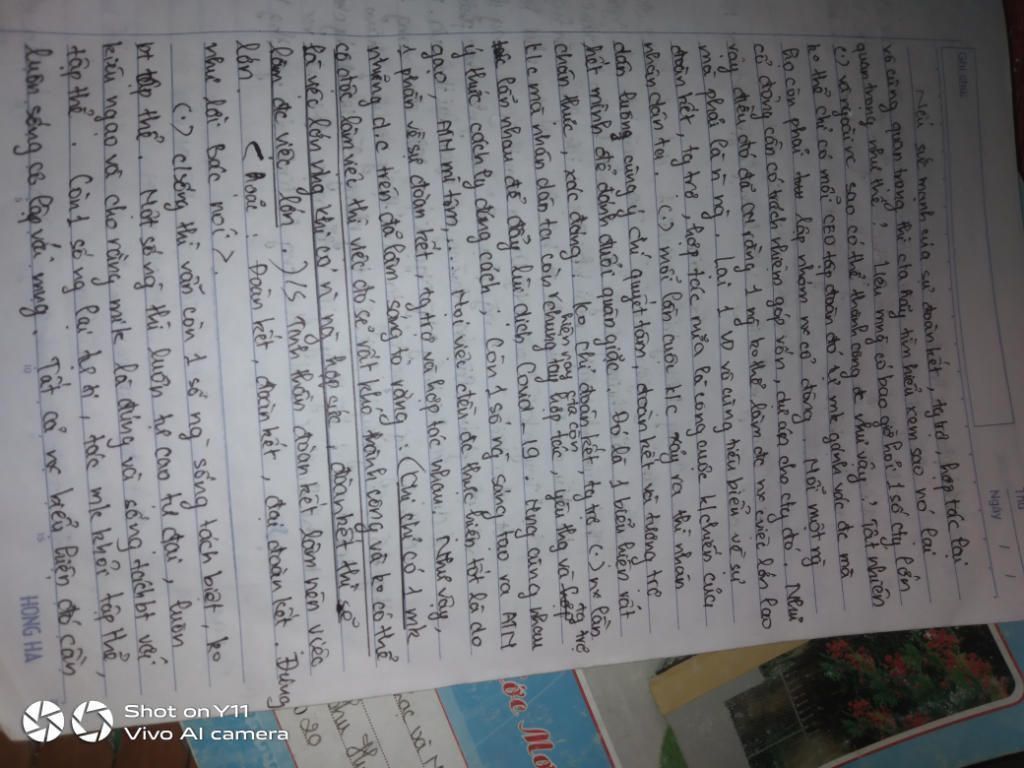 GHI ĐIỂM
THỨ
Ngày / /
Nói về sức mạnh của sự đoàn kết, tg trợ, hợp tác lại
vô cùng quan trọng thì cta hãy tìm hiểu xem sao nó lại
quan trọng như thế, 1 lều mng có bao giờ hỏi 1 số cty lớn
(.) và ngoài nc sao có thể thành công đc như vậy, Tất nhiên
ko thể chỉ có mỗi CEO tập đoàn đó tự mk gánh vác đc mà
họ còn phải lập nhóm nc cổ đông. Mỗi một ng
cổ đông cần có trách nhiệm góp vốn, dự án cho cty đó, Như
vậy điều đó đã cm rằng 1 ng ko thể làm đc nc việc lớn lao
mà phải là n ng. Lại 1 vd vô cùng tiêu biểu về sự
đoàn kết, tg trợ, hợp tác nữa là công cuộc k/chiến của
nhân dân ta. (.) mỗi lần cuộc k/c xảy ra thì nhân
dân luông cùng ý chí quyết tâm, đoàn kết và tương trợ
hết mình để đánh đuổi quân giặc. Đó là 1 biểu hiện rất
chân thực, xác đáng. Ko chỉ đoàn kết, tg trợ (.) nc lần
k/c mà nhân dân ta còn hiện nay của còn hợp tác, yêu thg và tg trợ
lẫn nhau để đẩy lùi dịch Covid-19. Nng cùng nhau
ý thức cách ly đúng cách, Còn 1 số ng sáng tạo ra ATM
gạo, ATM mì tôm,... Mọi việc đều đc thực hiện tốt là do
1 phần về sự đoàn kết, tg trợ và hợp tác nhau. Như vậy,
những d/c trên đã làm sáng tỏ rằng: (Chỉ chỉ có 1 mk
cá độc làm việc thì việc đó sẽ rất khó thành công và ko có thể
là việc lớn nhg khi có n ng hợp sức, đoàn kết thì sẽ
làm đc việc lớn.) /S Tinh thần đoàn kết làm nên việc
lớn. < Aoóc. Đoàn kết, đoàn kết, đại đoàn kết. Đúng
như lời Bác nói >.
(.) c/sống thì vẫn còn 1 số ng sống tách biệt, ko
tập thể. Một số ng thì luôn tự cao tự đại, luôn
kiêu ngạo và cho rằng mk là đúng và sống tách bt với
tập thể. Còn 1 số ng lại tự ti, tách mk khỏi tập thể,
luôn sống cô lập với mng. Tất cả nc biểu hiện đó cần
HỒNG HÀ
10
15
Shot on Y11
Vivo AI camera